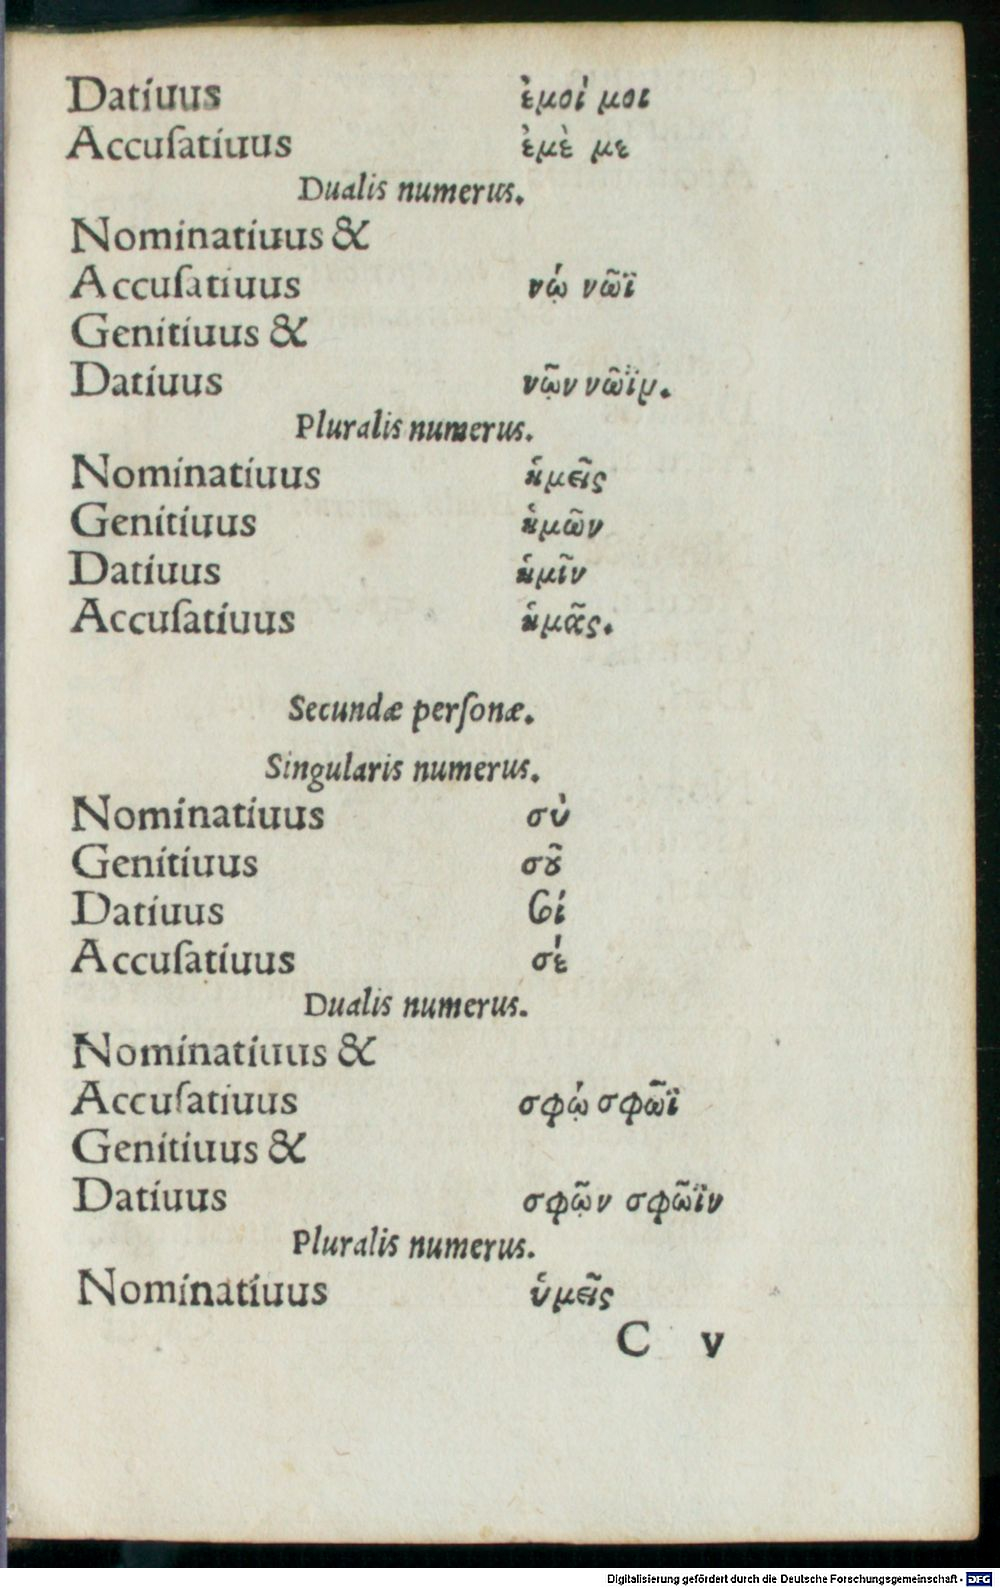 Datiuus ἐμοί μοι
Accuſatiuus ἐμὲ με
Dualis numerus.
Nominatiuus &
Accuſatiuus νῴ νῶϊ
Genitiuus &
Datiuus νῷν νῶϊν.
Pluralis numerus.
Nominatiuus ἡμεῖς
Genitiuus ἡμῶν
Datiuus ἡμῖν
Accuſatiuus ἡμᾶς.
Secundæ perſonæ.
Singularis numerus.
Nominatiuus σὺ
Genitiuus σοῦ
Datiuus σοί
Accuſatiuus σέ
Dualis numerus.
Nominatiuus &
Accuſatiuus σφῴ σφῶϊ
Genitiuus &
Datiuus σφῷν σφῶϊν
Pluralis numerus.
Nominatiuus ὑμεῖς
C v
Digitalisierung gefördert durch die Deutsche Forschungsgemeinschaft - DFG